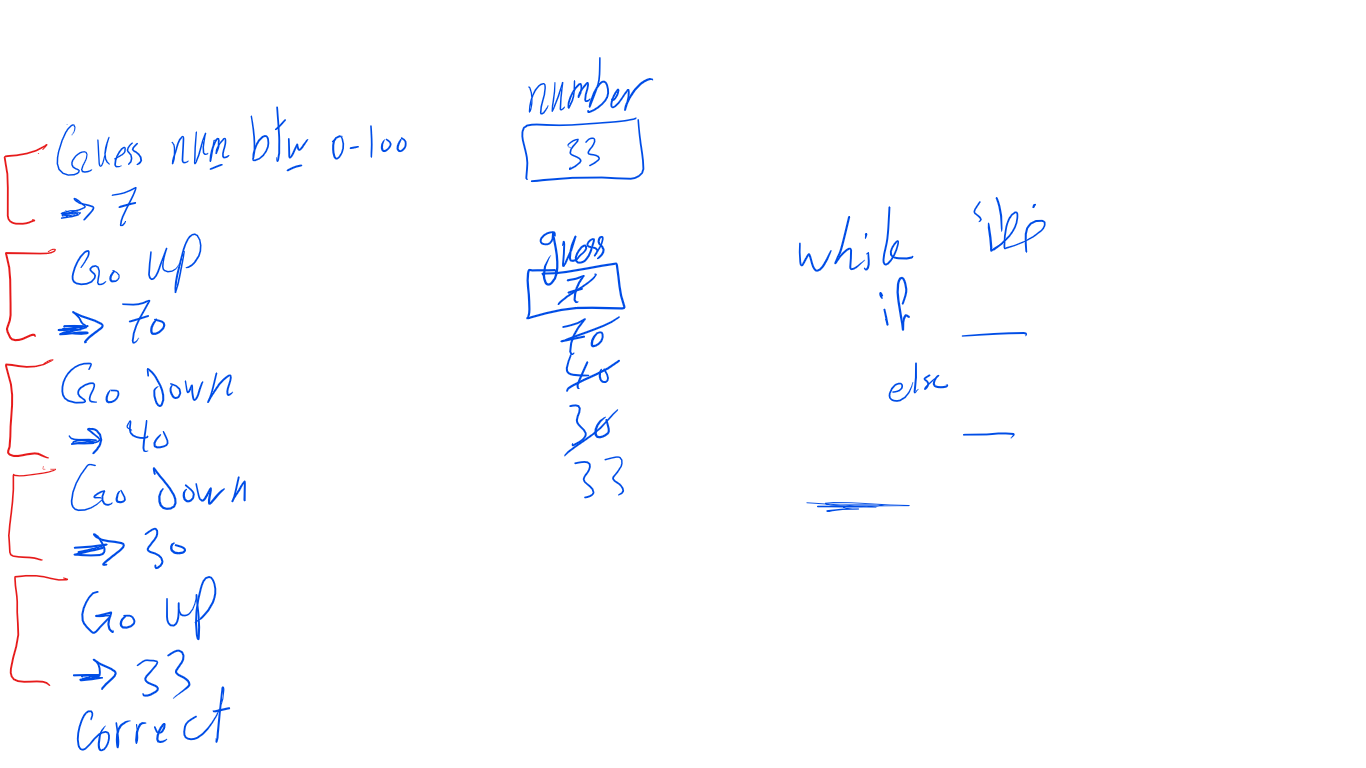 Guess num btw 0-100
→ 7
Go up
→ 70
Go down
→ 40
Go down
→ 30
Go up
→ 33
Correct
number
33
guess
7
70
40
30
33
while
if
else